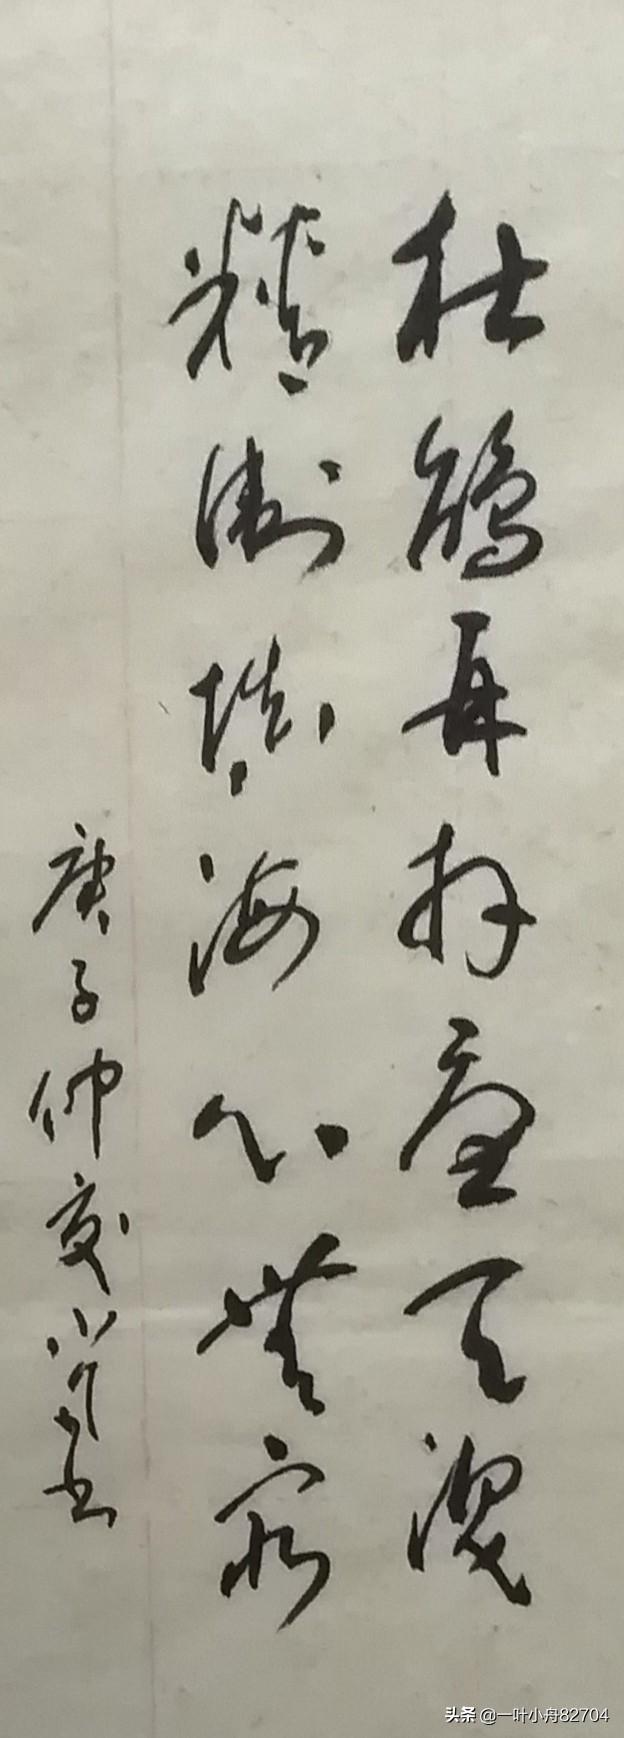 杜鹃再拜憂天淚
精衛填海心無窮
庚子仲夏小舟书
头条 @一叶小舟82704